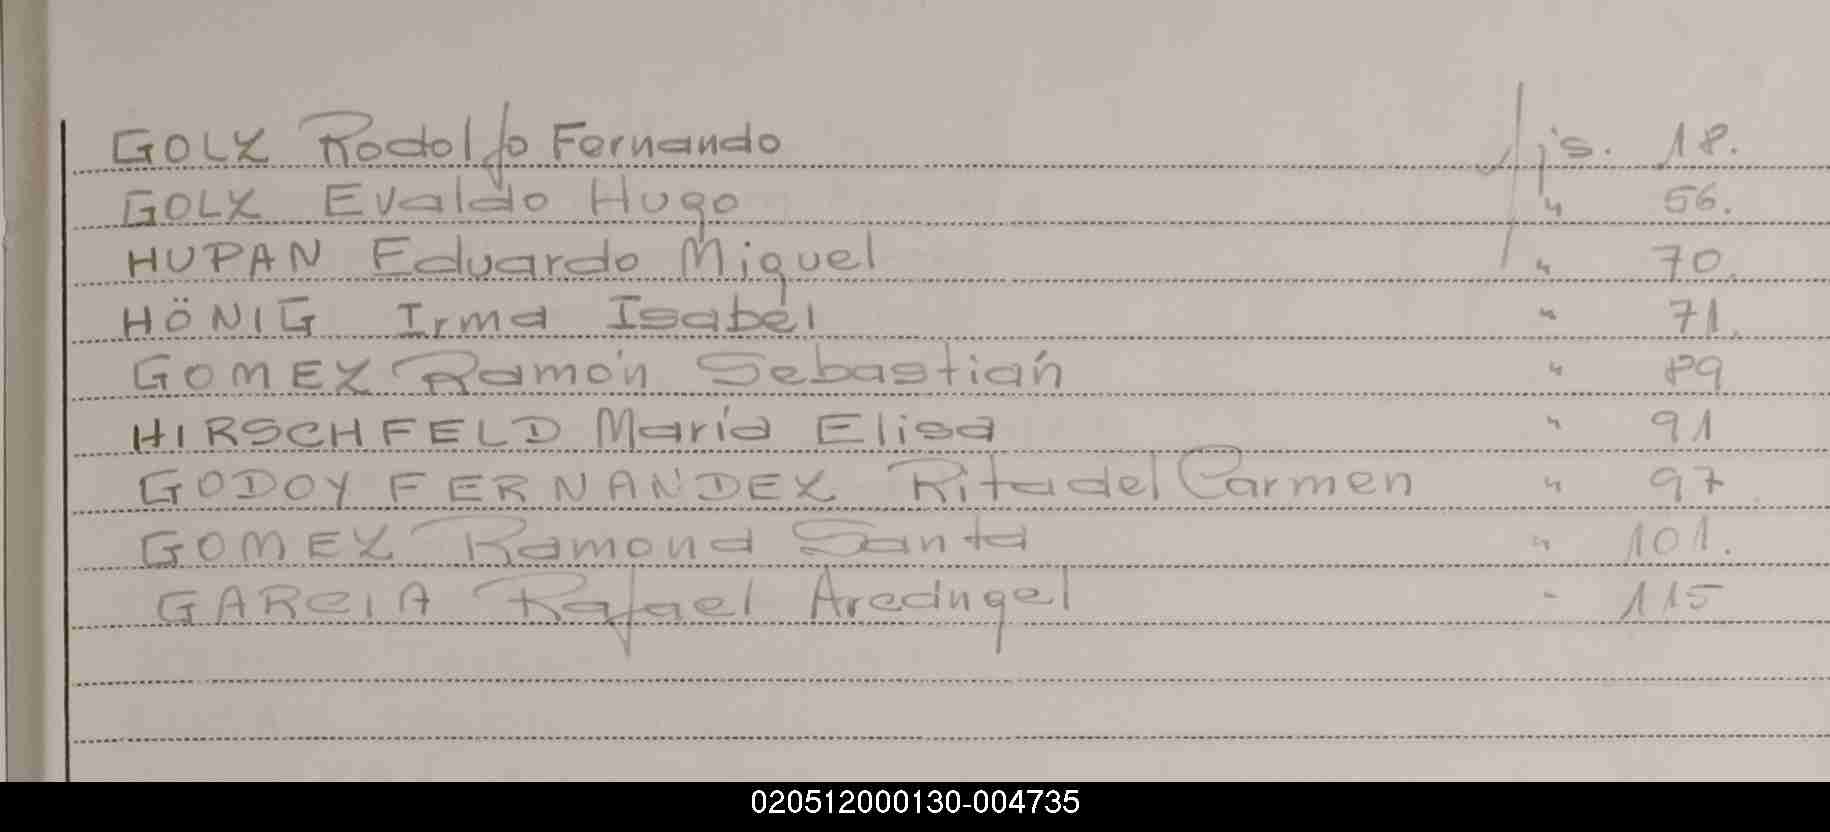 GOLZ Rodolfo Fernando fjs. 18.
GOLZ Evaldo Hugo " 56.
HUPAN Eduardo Miguel " 70.
HÖNIG Irma Isabel " 71.
GOMEZ Ramón Sebastián " 89
HIRSCHFELD María Elisa " 91
GODOY FERNANDEZ Rita del Carmen " 97
GOMEZ Ramona Santa " 101.
GARCIA Rafael Arcángel " 115
020512000130-004735